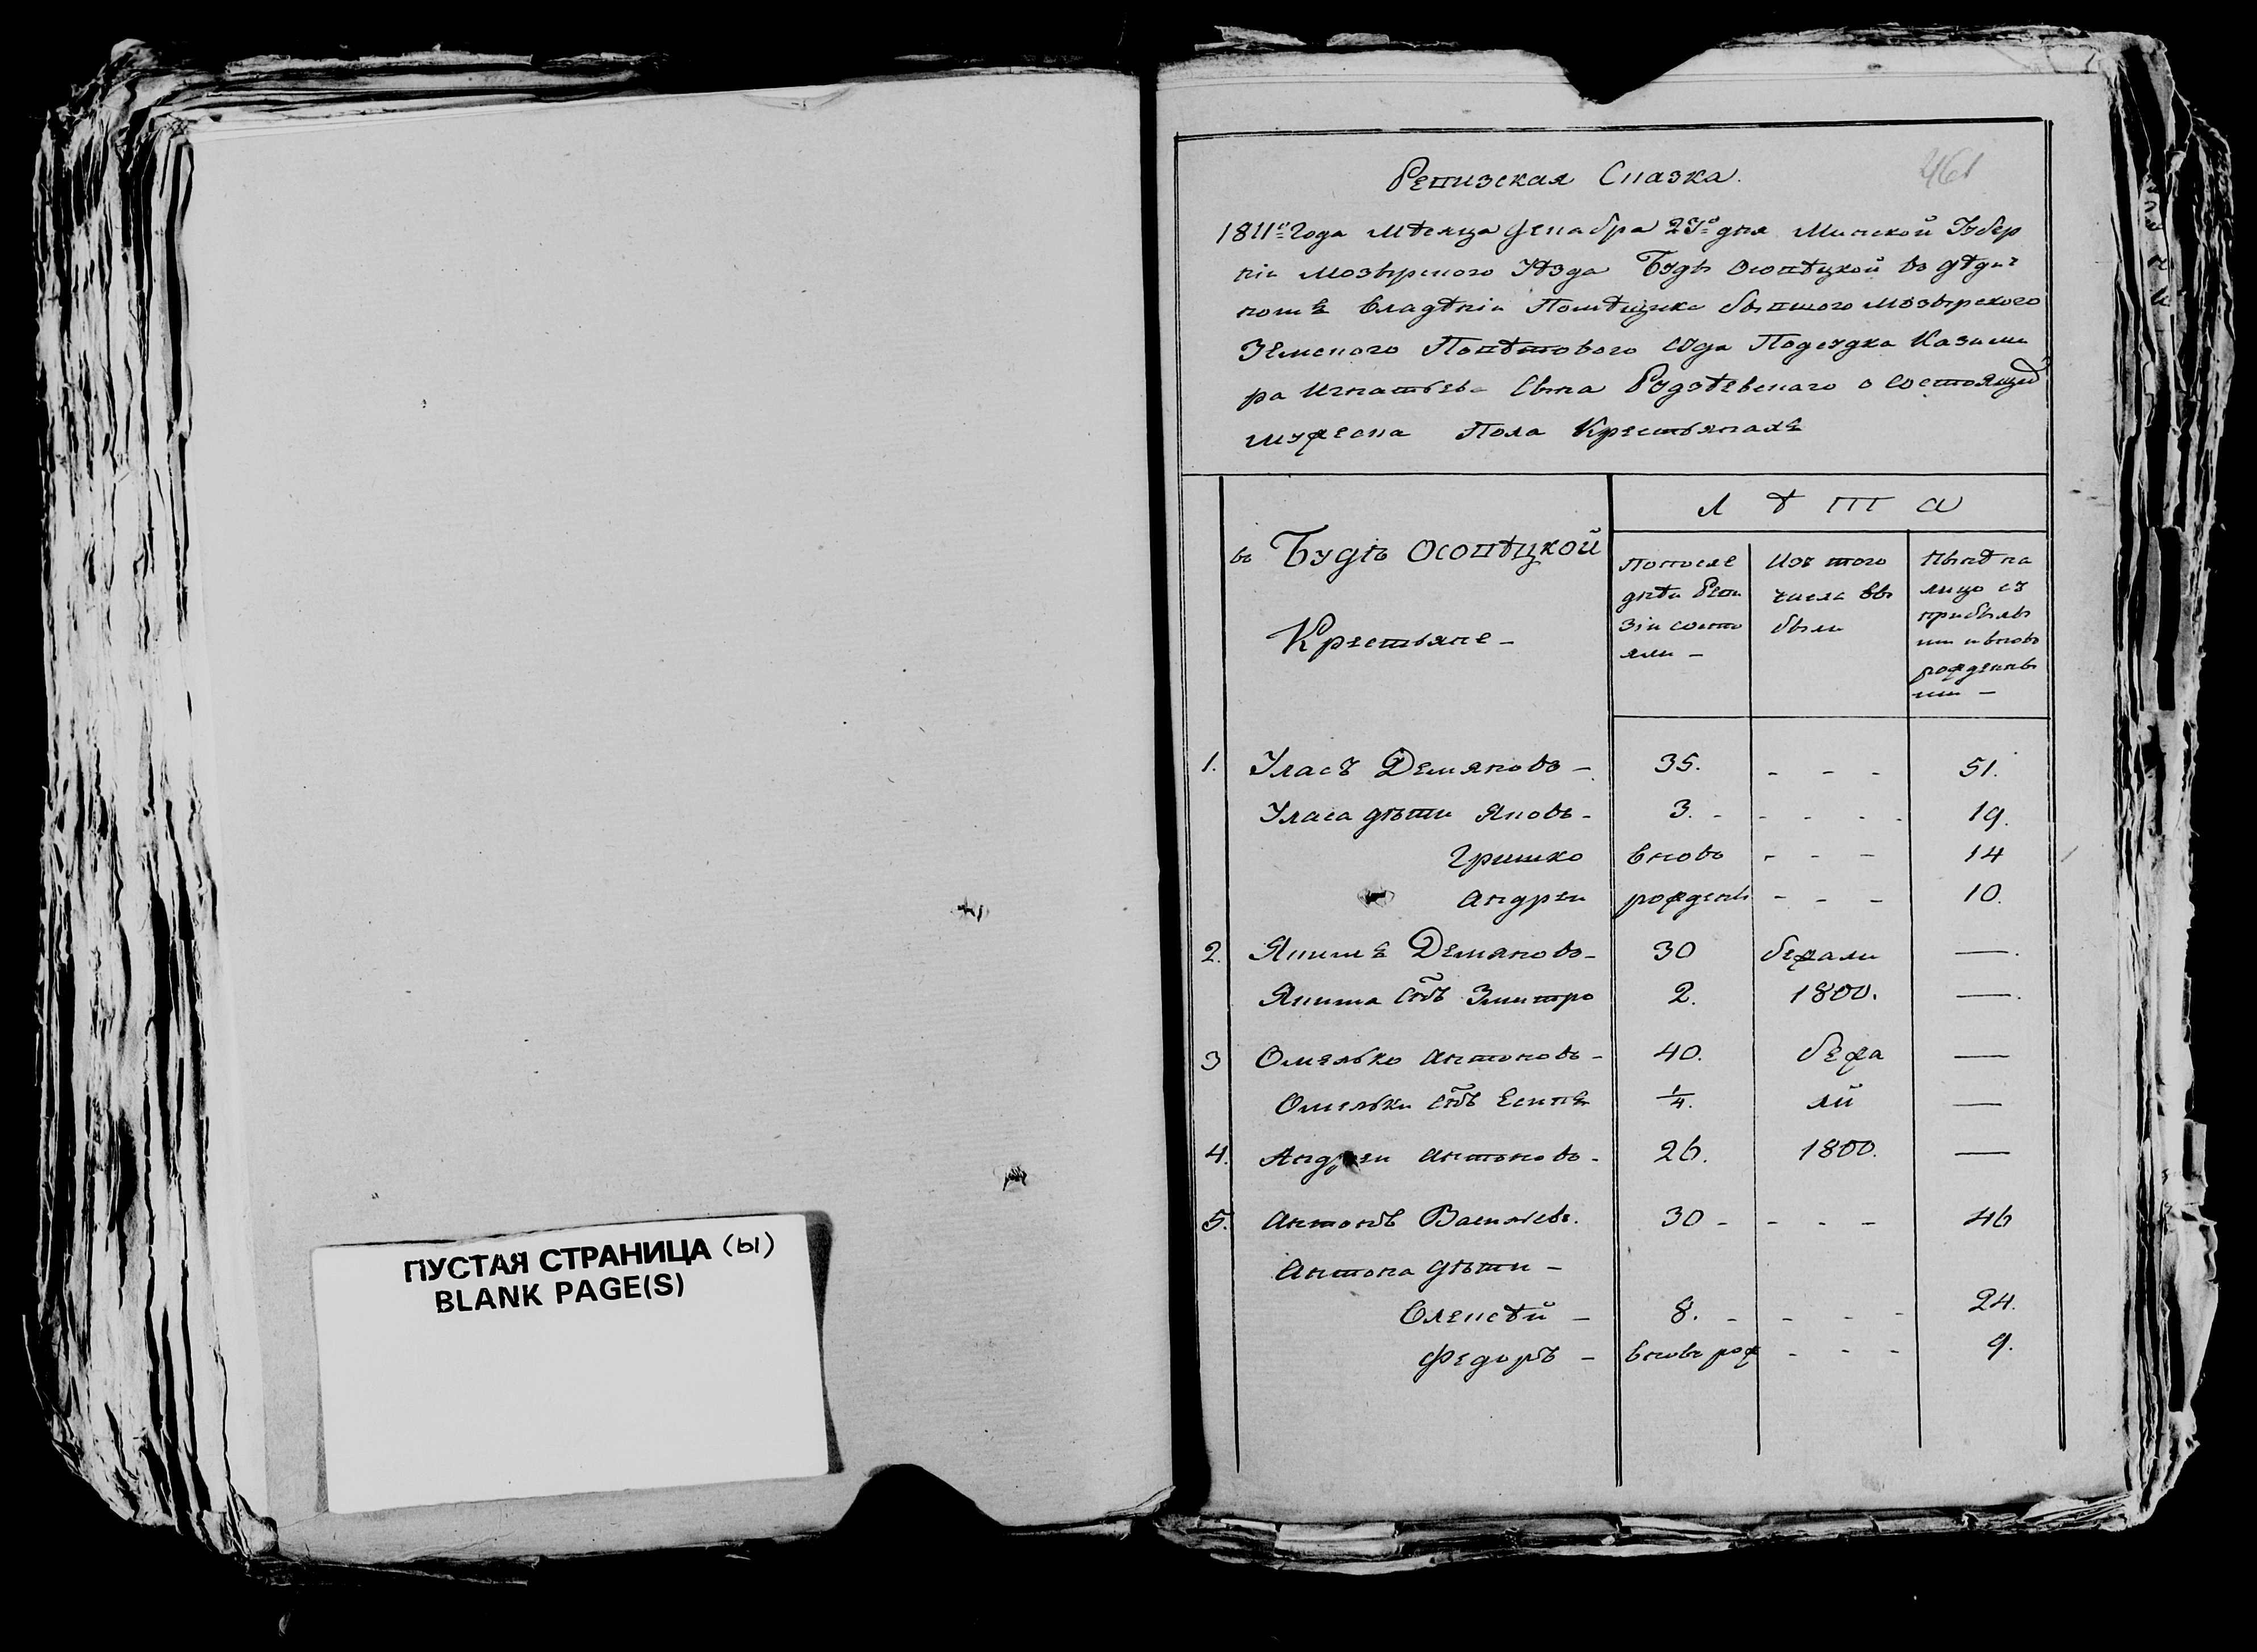 ПУСТАЯ СТРАНИЦА (ы)
BLANK PAGE(S)
461
Ревизская Сказка.
1811го Года Мѣсяца Декабря 23го дня Минской Губер
ніи Мозырского Уѣзда Будѣ Осовѣцкой въ дѣдич
номъ владѣніи Помѣщика бывшого Мозырского
Земского Повѣтового суда Подсудка Казими
ра Игнатьева сына Рудзѣевского о состоящихъ
мужеска Пола Крестьянахъ
Лѣта
въ Будѣ Осовѣцкой
Крестьяне -
По после
дней Реви
зіи состо
яли -
Изъ того
числа вы
были
Нынѣ на
лицо съ
прибылы
ми и вновь
рожденны
ми -
1. Уласъ Демяновъ - 35. - - - 51.
Уласа дѣти Яковъ - 3. - - - - 19.
Гришко вновь - - - 14
Андреи рождены - - - 10.
2. Якимъ Демяновъ - 30 бежали —
Якима снъ Змитро 2. 1800. —
3 Омелько Антоновъ - 40. бежа —
Омельки снъ Есипъ 1/4. ли —
4. Андреи Антоновъ - 26. 1800. —
5. Антонъ Васильевъ. 30 - - - - 46
Антона дѣти -
Олексѣй - 8. - - - - 24.
Федоръ - вновь рож - - - 9.